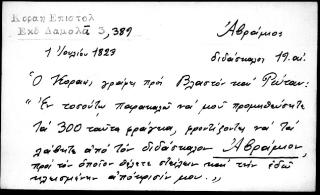 Κοραη Επιστολ
Εκδ Δαμαλᾶ 3, 389
Ἀβράμιος
1 Ἰουλίου 1823
διδάσκαλος 19. αἰ.
Ὁ Κοραης γράφει πρὸς Βλαστὸν καὶ Ῥώταν:
"Ἐν τοσούτῳ παρακαλῶ νὰ μοῦ προμηθεύσητε
τὰ 300 ταῦτα φράγκα, φροντίζοντες νὰ τὰ
λάβητε ἀπὸ τὸν διδάσκαλον Ἀβράμιον,
πρὸς τὸν ὁποῖον θέλετε στείλειν καὶ τὴν ἐδῶ
κλεισμένην ἀπόκρισίν μου.,,